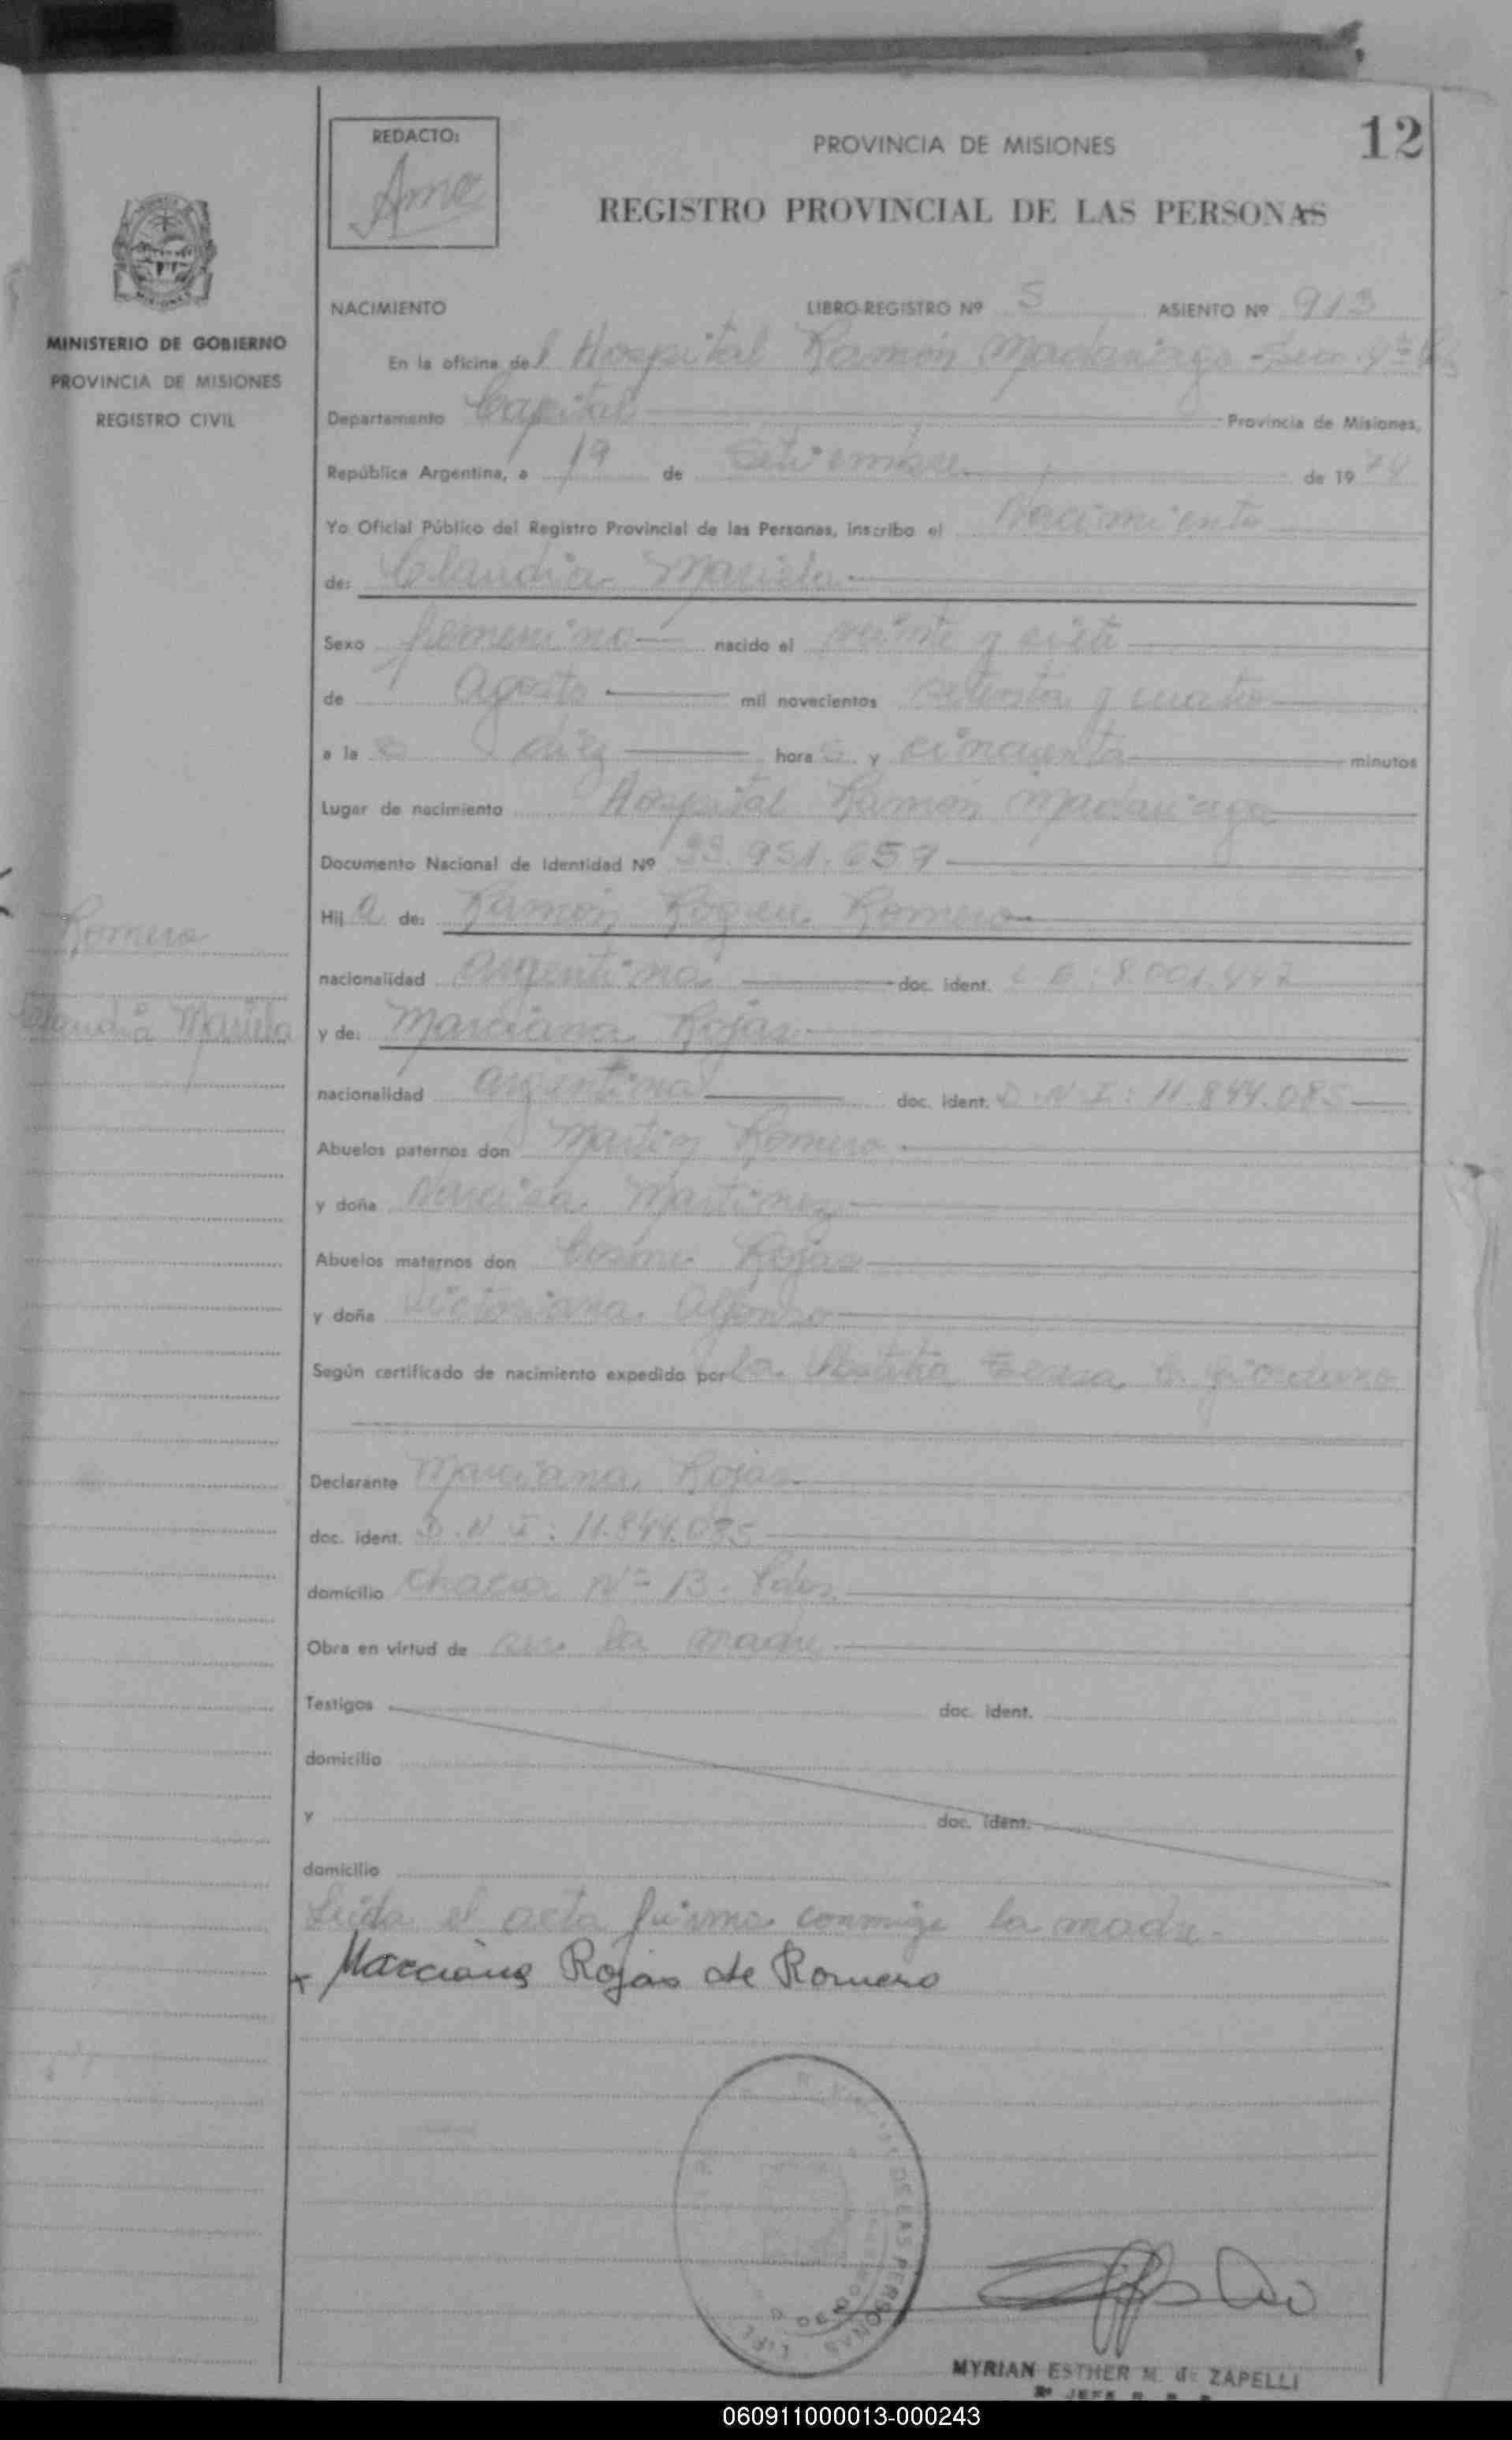 REDACTO:
PROVINCIA DE MISIONES
12
REGISTRO PROVINCIAL DE LAS PERSONAS
MINISTERIO DE GOBIERNO
PROVINCIA DE MISIONES
REGISTRO CIVIL
NACIMIENTO LIBRO-REGISTRO Nº 5 ASIENTO Nº 913
En la oficina del Hospital Ramón Madariaga
Departamento Capital Provincia de Misiones,
República Argentina, a 19 de Setiembre de 1974
Yo Oficial Público del Registro Provincial de las Personas, inscribo el Nacimiento
de: Claudia Mariela
Sexo femenino nacido el veinte y siete
de Agosto mil novecientos setenta y cuatro
a la s diez hora s y cincuenta minutos
Lugar de nacimiento Hospital Ramón Madariaga
Documento Nacional de Identidad Nº 951.659
Hij a de: Ramón Romero
nacionalidad argentina doc. ident. 8.001.447
y de: Marciana Rojas
nacionalidad argentina doc. ident. D.N.I: 11.844.085
Abuelos paternos don Martin Romero
y doña Narcisa Martinez
Abuelos maternos don Cosme Rojas
y doña Victoriana Alfonso
Según certificado de nacimiento expedido por la
Declarante Marciana Rojas
doc. ident. D.N.I: 11.844.085
domicilio Chacra Nº 13. Pdas.
Obra en virtud de ser la madre
Testigos doc. ident.
domicilio
y doc. ident.
domicilio
Leída el acta firma conmigo la madre.
Marciana Rojas de Romero
Romero
Claudia Mariela
DE LAS PERSONAS
MYRIAN ESTHER M. de ZAPELLI
060911000013-000243